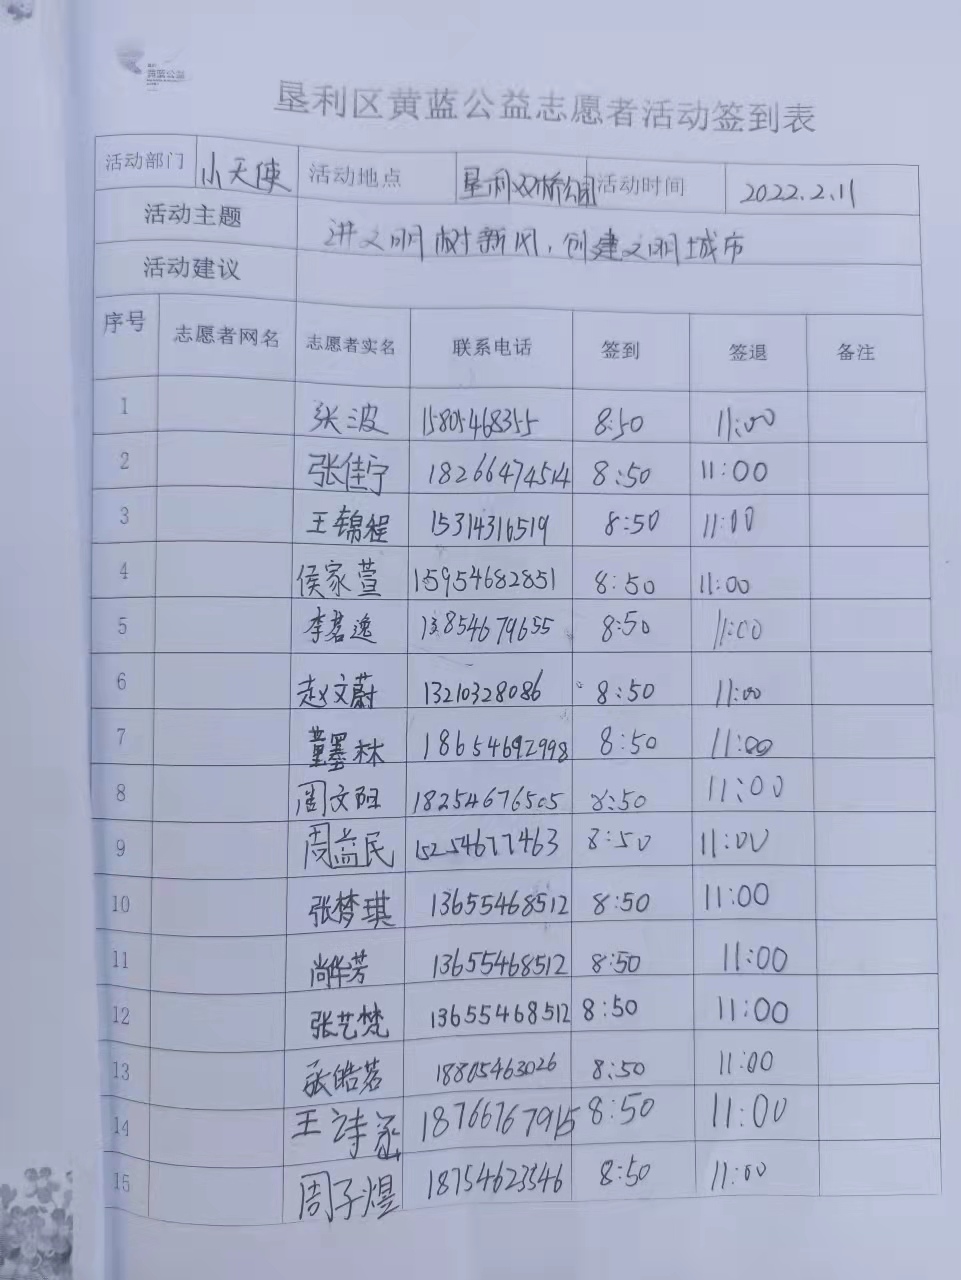 黄蓝公益
垦利区黄蓝公益志愿者活动签到表
活动部门 小天使 活动地点 垦利双桥公园 活动时间 2022.2.11
活动主题 讲文明树新风,创建文明城市
活动建议
序号 志愿者网名 志愿者实名 联系电话 签到 签退 备注
1 张波 15805468355 8:50 11:00
2 张佳宁 18266474514 8:50 11:00
3 王锦程 15314316519 8:50 11:00
4 侯家萱 15954682851 8:50 11:00
5 李茗逸 13854679655 8:50 11:00
6 赵文蔚 13210328086 8:50 11:00
7 董墨林 18654692998 8:50 11:00
8 周文阳 18254676505 8:50 11:00
9 周益民 15254677463 8:50 11:00
10 张梦琪 13655468512 8:50 11:00
11 尚华芳 13655468512 8:50 11:00
12 张艺梵 13655468512 8:50 11:00
13 张皓茗 18805463026 8:50 11:00
14 王诗涵 18766767915 8:50 11:00
15 周子煜 18754623546 8:50 11:00